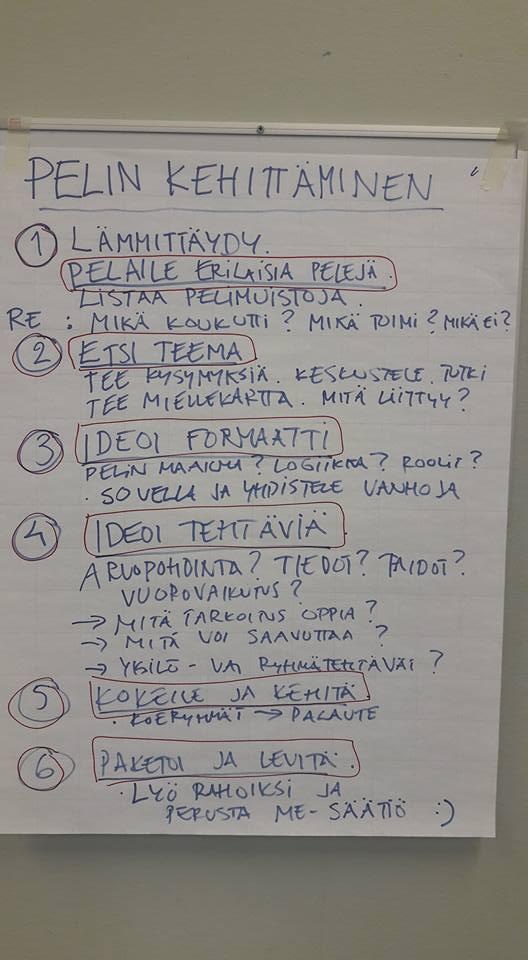 PELIN KEHITTÄMINEN
1 LÄMMITTÄYDY.
PELAILE ERILAISIA PELEJÄ.
LISTAA PELIMUISTOJA.
RE : MIKÄ KOUKUTTI? MIKÄ TOIMI? MIKÄ EI?
2 ETSI TEEMA
TEE KYSYMYKSIÄ. KESKUSTELE. TUTKI
TEE MIELLEKARTTA. MITÄ LIITTYY?
3 IDEOI FORMAATTI
PELIN MAAILMA? LOGIIKKA? ROOLIT?
· SOVELLA JA YHDISTELE VANHOJA
4 IDEOI TEHTÄVIÄ
ARVOPOHDINTA? TIEDOT? TAIDOT?
VUOROVAIKUTUS?
→ MITÄ TARKOITUS OPPIA?
→ MITÄ VOI SAAVUTTAA?
→ YKSILÖ- VAI RYHMÄTEHTÄVÄT?
5 KOKEILE JA KEHITÄ
· KOERYHMÄT → PALAUTE
6 PAKETOI JA LEVITÄ.
· LYÖ RAHOIKSI JA
PERUSTA ME-SÄÄTIÖ :)